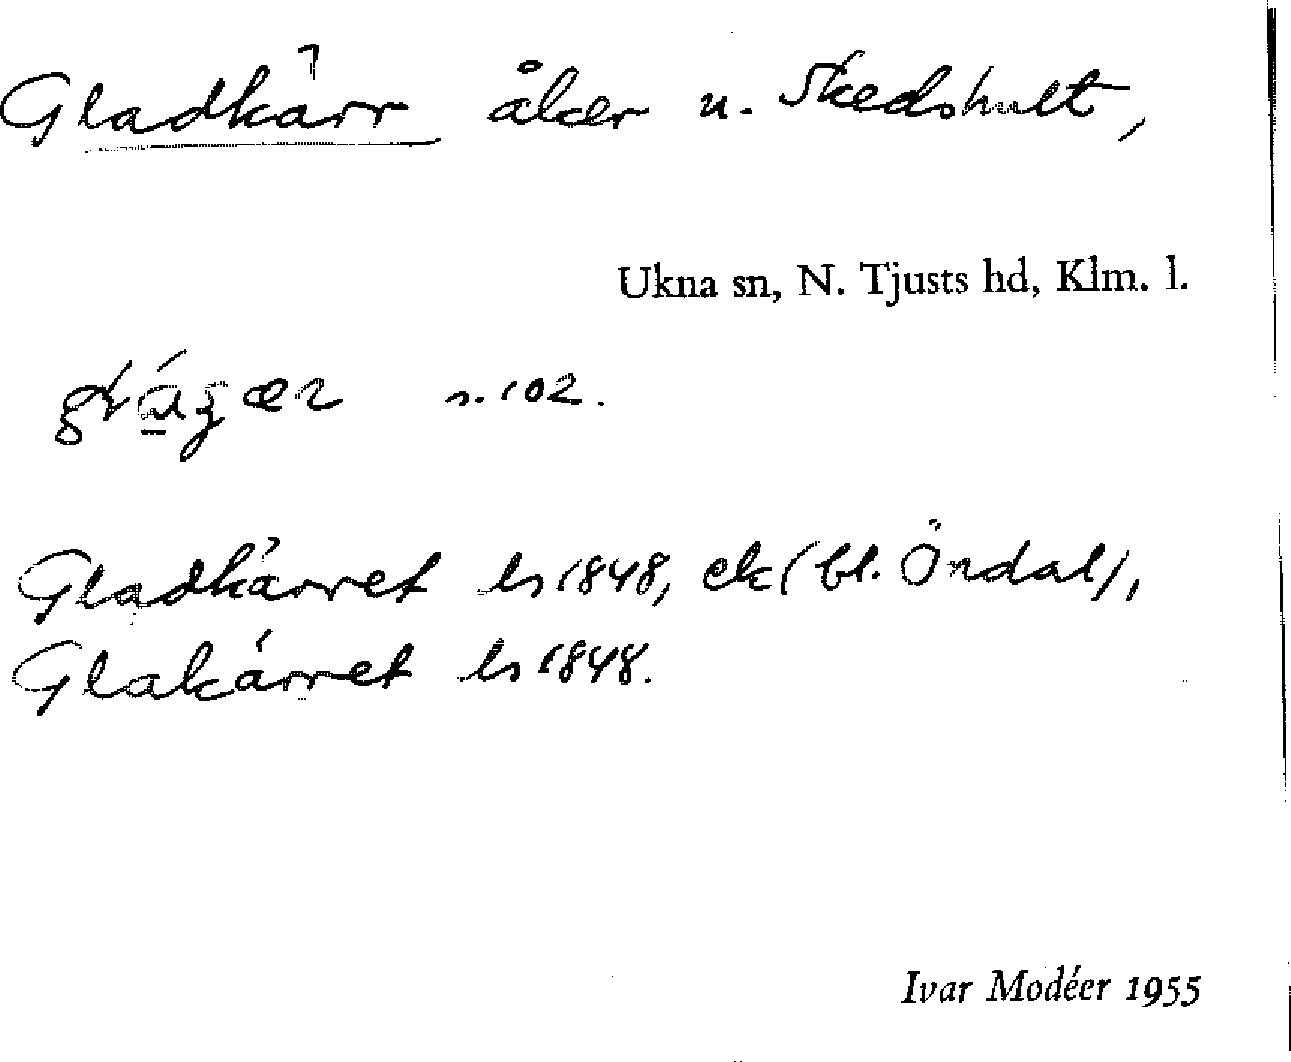 Gladkärr åker n. Skedshult,
Ukna sn, N. Tjusts hd, Klm. l.
s. 102.
Gladkärret ls 1848, ek (bl. Öndal),
Glakärret ls 1848.
Ivar Modéer 1955